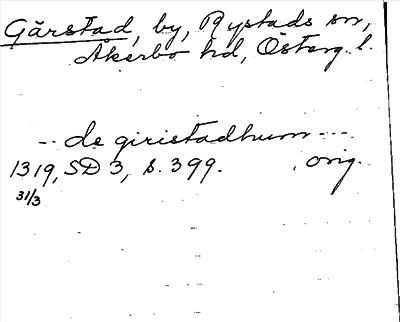 Gärstad, by, Rystads sn,
Åkerbo hd, Österg. l.
-- de giristadhum ---
1319, SD 3, s. 399. orig.
31/3